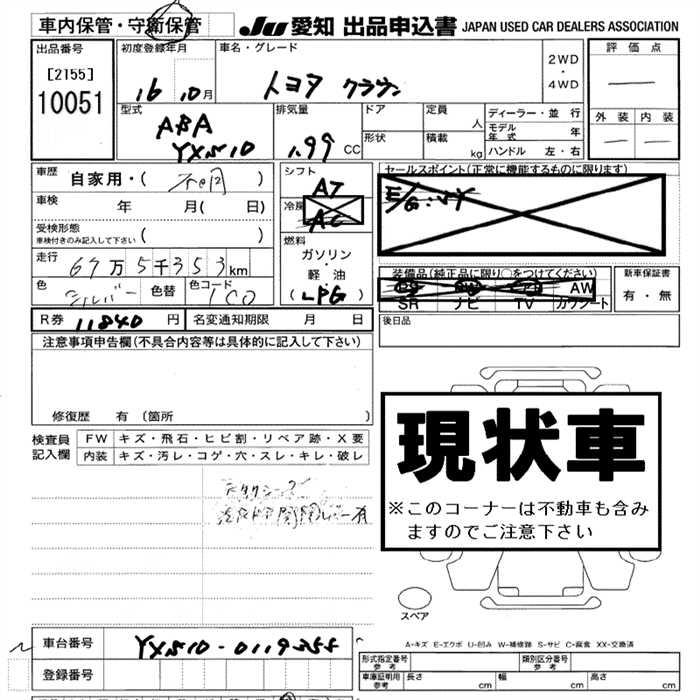 車内保管・守衛保管
JU 愛知 出品申込書 JAPAN USED CAR DEALERS ASSOCIATION
出品番号
[2155]
10051
初度登録年月
16 10月
車名・グレード
トヨタ クラウン
2WD
・
4WD
評価点
外装 内装
型式
ABA
YXS10
排気量
1.99 CC
ドア
形状
定員
人
積載
kg
ディーラー・並行
モデル年式 年
ハンドル 左・右
車歴
自家用・( 不明 )
車検 年 月( 日)
受検形態
車検付きのみ記入して下さい ( )
走行
67万5千353km
色
シルバー
色替
色コード
1C0
シフト
AT
冷房
AC
燃料
ガソリン
・
軽・油
(LPG)
セールスポイント(正常に機能するものに限ります)
装備品(純正品に限り○をつけてください)
AW
SR ナビ TV カワシート
新車保証書
有・無
後日品
R券 11840 円 名変通知期限 月 日
注意事項申告欄(不具合内容等は具体的に記入して下さい)
修復歴 有 (箇所 )
検査員記入欄
FW キズ・飛石・ヒビ割・リペア跡・X要
内装 キズ・汚レ・コゲ・穴・スレ・キレ・破レ
現状車
※このコーナーは不動車も含み
ますのでご注意下さい
スペア
A-キズ E-エクボ U-凹み W-補修跡 S-サビ C-腐食 XX-交換済
車台番号 YXS10-0119355
登録番号
形式指定番号
参考
類別区分番号
参考
車庫証明用
参考
長さ cm 幅 cm 高さ cm